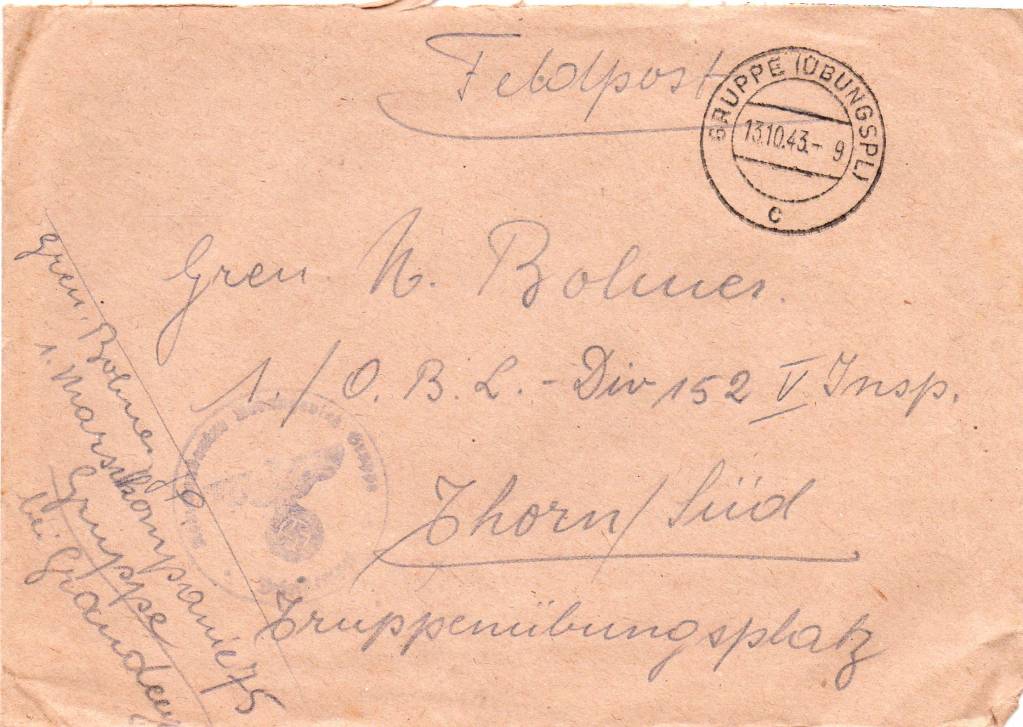 Feldpost
GRUPPE (ÜBUNGSPL)
13.10.43.- 9
c
Gren. N. Bohmer.
1./O. B. L.-Div 152 V Insp.
Thorn/Süd
Truppenübungsplatz
Gren. Bohmer
1. Marschkompanie 75
Gruppe
bei Graudenz
Gruppe